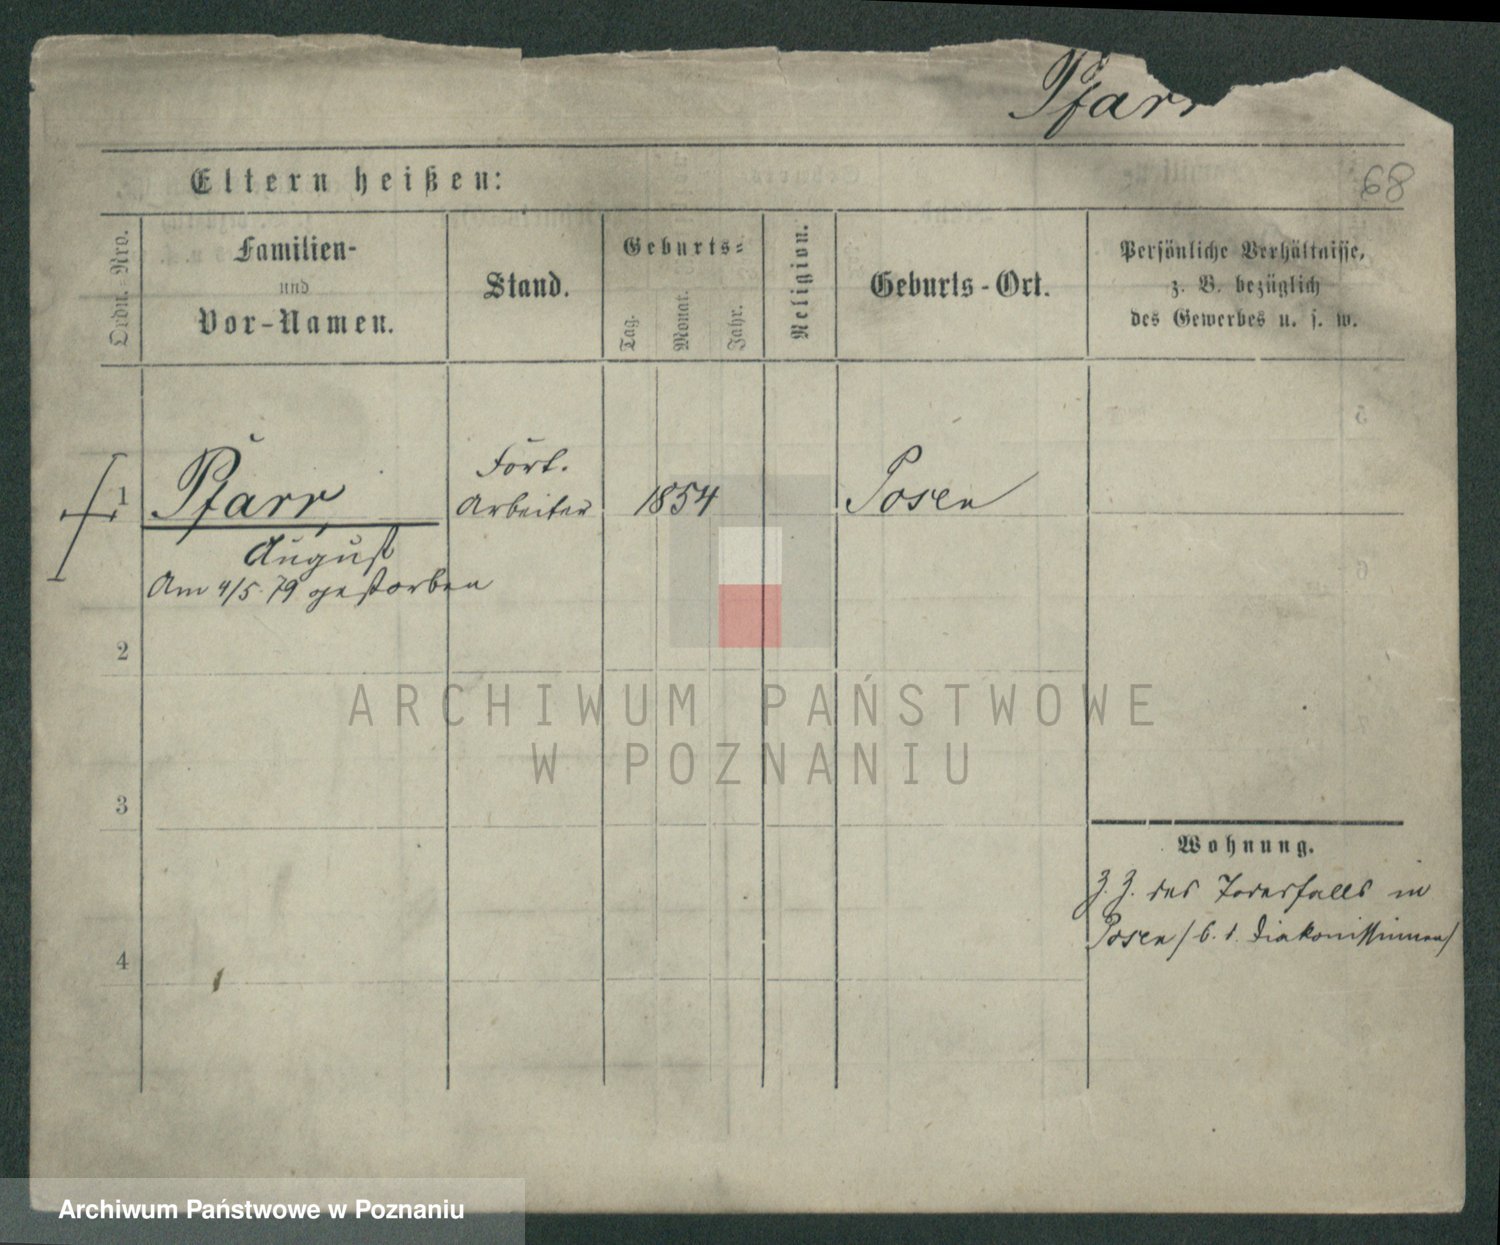 Pfarr
Eltern heißen:
68
Ordn.-Nro.
Familien-
und
Vor-Namen.
Stand.
Geburts-
Tag.
Monat.
Jahr.
Religion.
Geburts-Ort.
Persönliche Verhältnisse,
z. B. bezüglich
des Gewerbes u. s. w.
1
Pfarr
August
Am 4/5. 79 gestorben
Fort.
Arbeiter
1854
Posen
2
3
4
Wohnung.
Z. Z. des Todesfalls in
Posen / b. d. Diakonissinnen /
ARCHIWUM PAŃSTWOWE
W POZNANIU
Archiwum Państwowe w Poznaniu